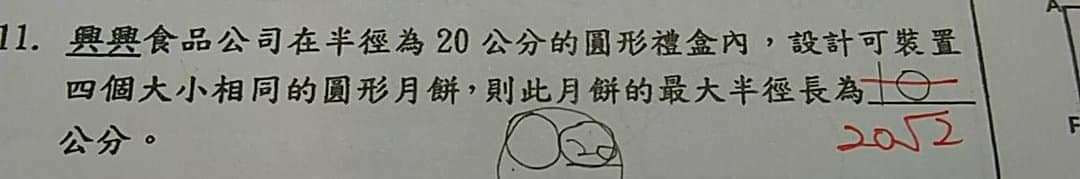 11. 興興食品公司在半徑為 20 公分的圓形禮盒內，設計可裝置
四個大小相同的圓形月餅，則此月餅的最大半徑長為 10
公分。
20√2
20
A
F